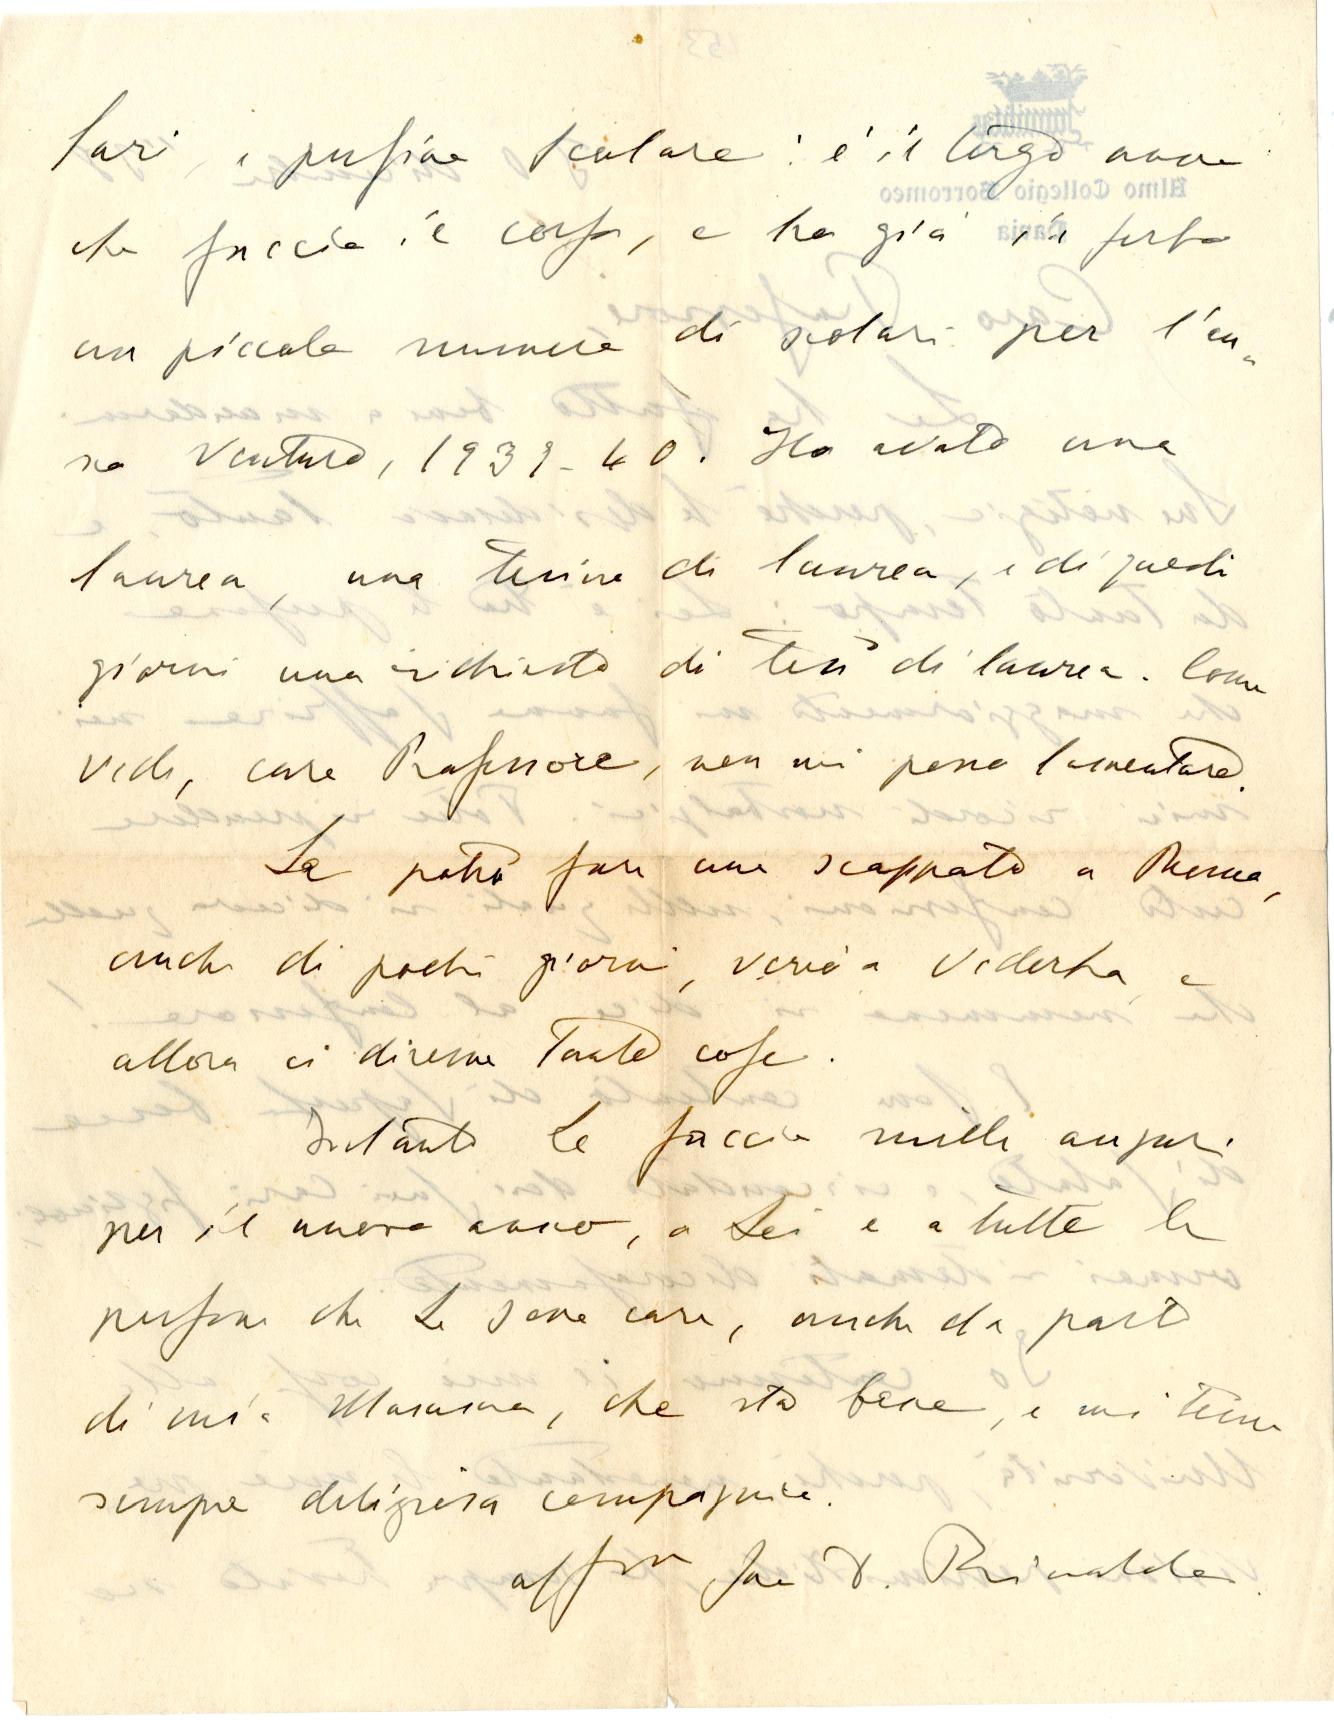 sari, e persino scolare: è il terzo anno
che faccio il corso, e ho già in serbo
un piccolo numero di scolari per l'an-
no venturo, 1939-40. Ho avuto una
laurea, una tesina di laurea, e di questi
giorni una richiesta di tesi di laurea. Come
vede, caro Professore, non mi posso lamentare.
Se potrò fare una scappata a Roma,
anche di pochi giorni, verrò a vederLa, e
allora ci diremo tante cose.
Intanto Le faccio mille auguri
per il nuovo anno, a Lei e a tutte le
persone che Le sono care, anche da parte
di mia Mamma, che sta bene, e mi tiene
sempre deliziosa compagnia.
aff.mo Suo D. Rinaldo.
Almo Collegio Borromeo
Pavia